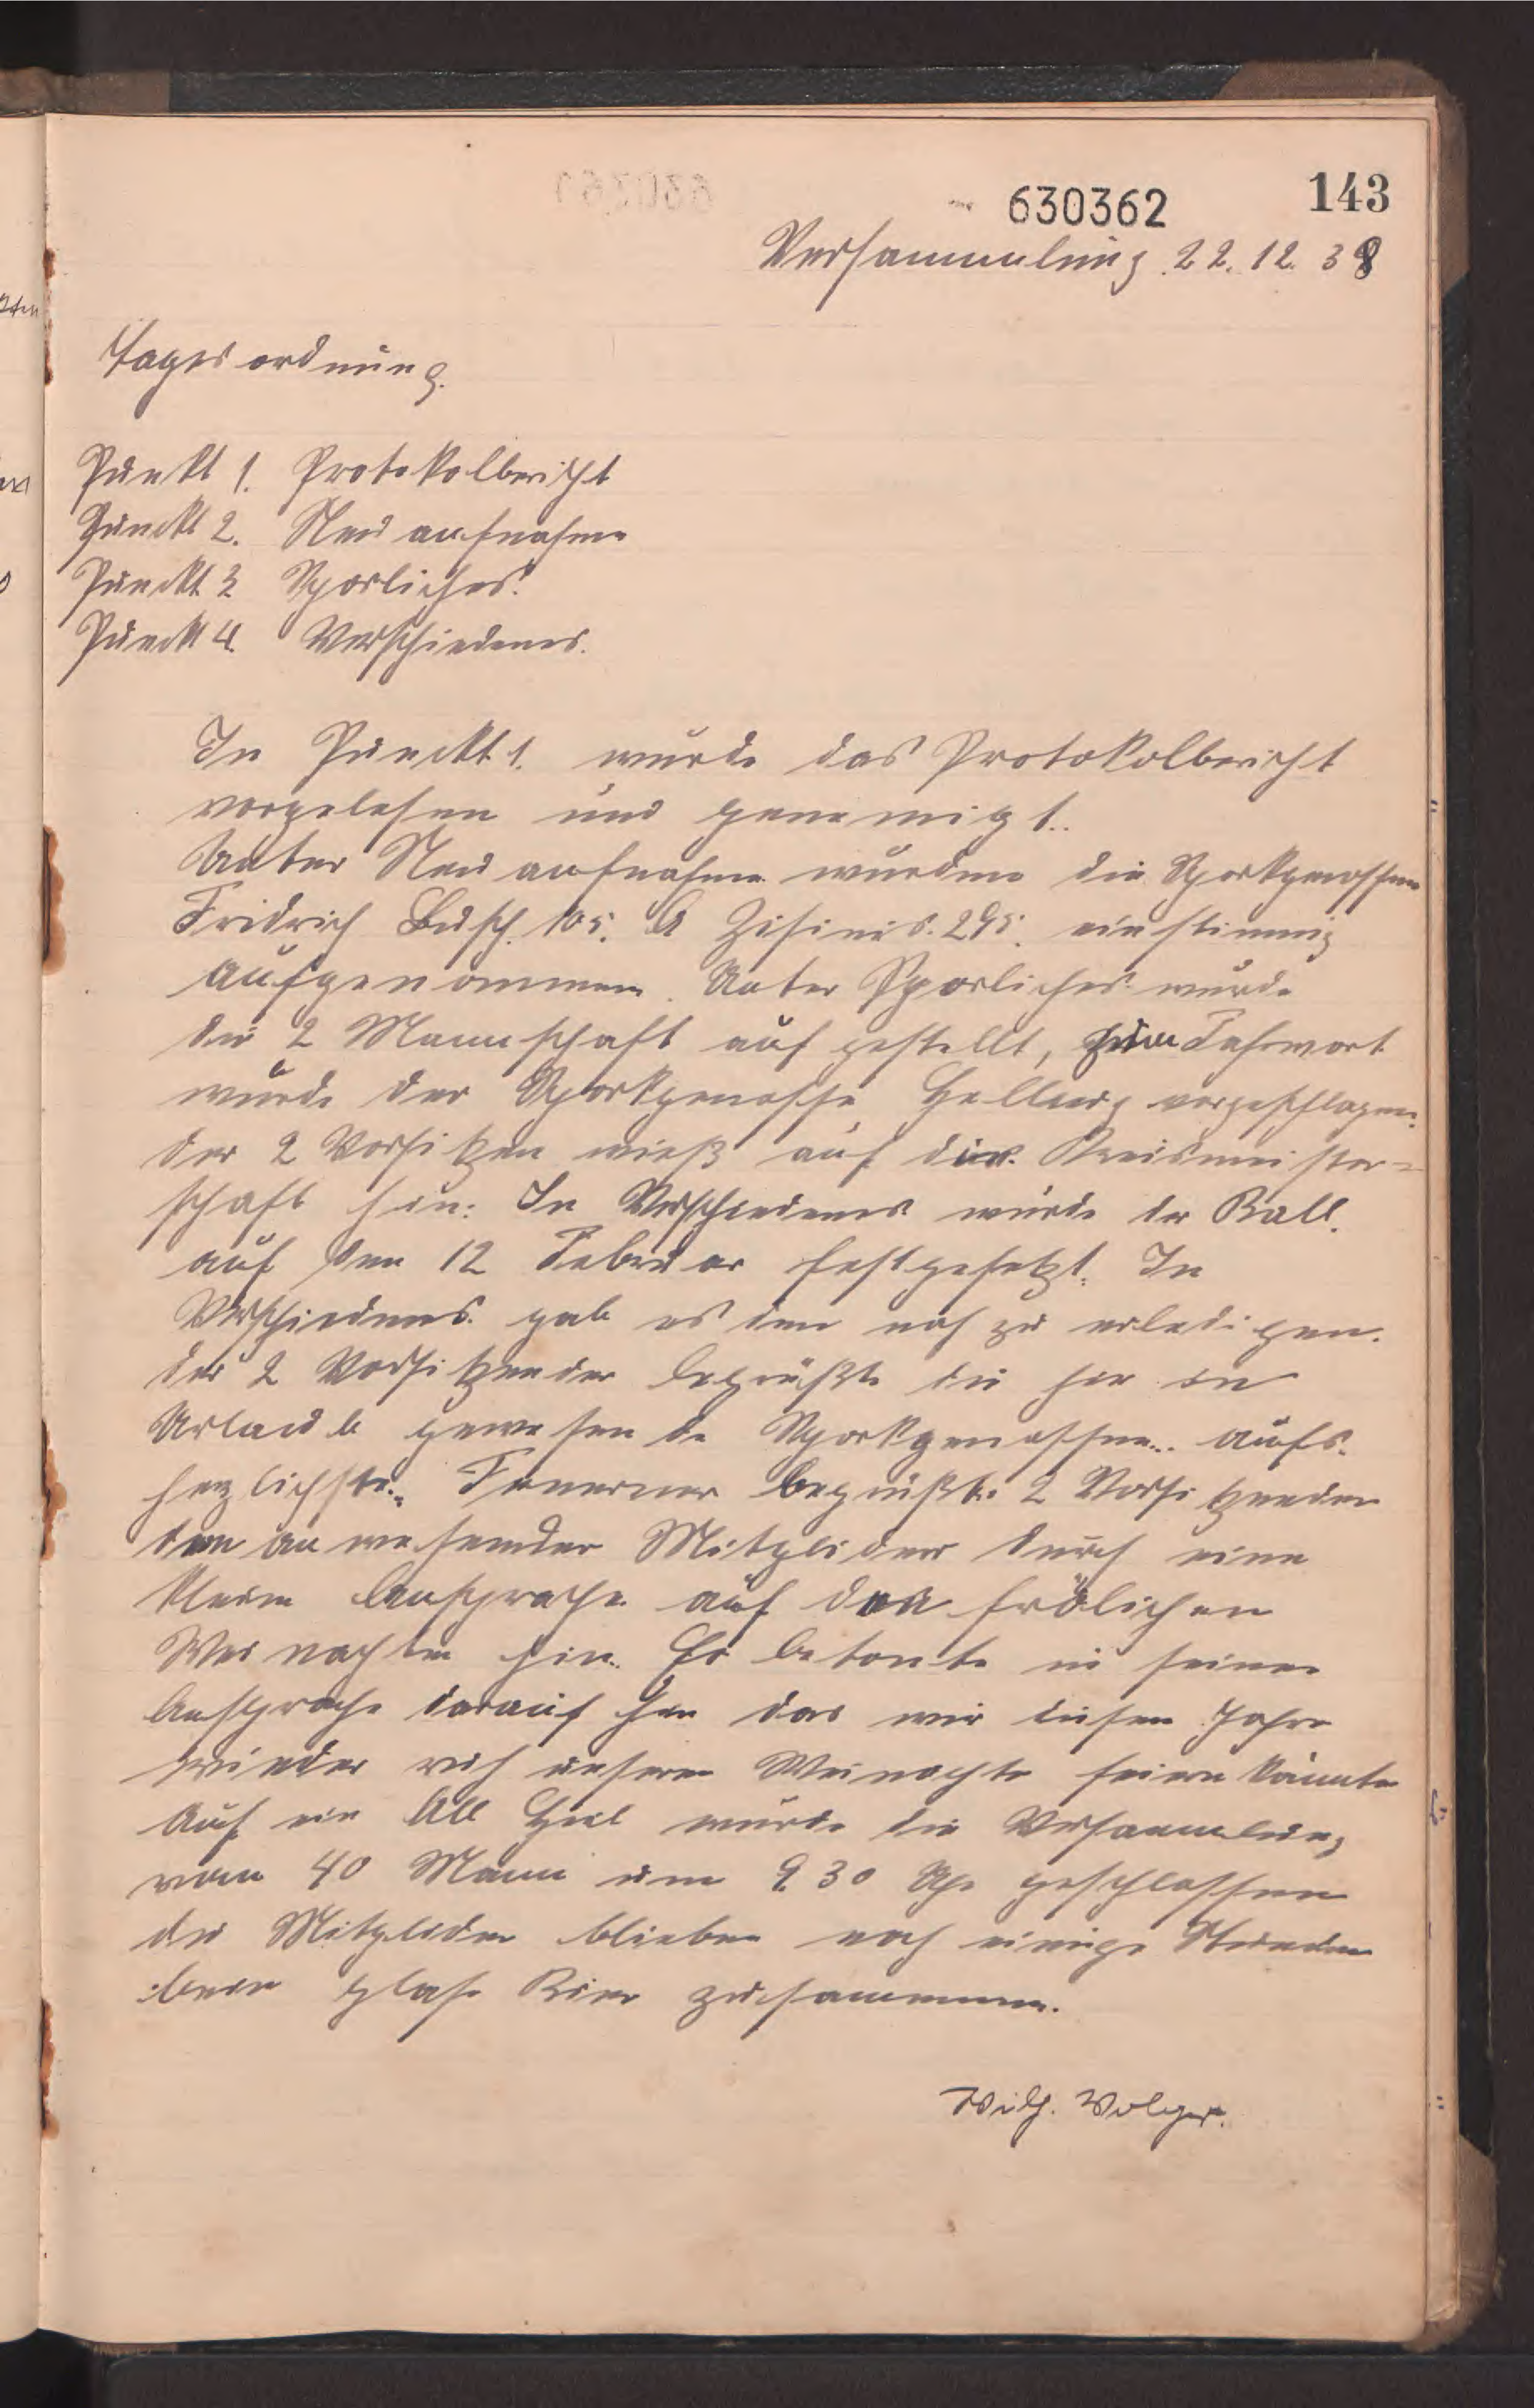 143
630362
Versammlung 22. 12. 38
Tagesordnung.
Punkt 1. Protokolbericht
Punckt 2. Neuaufnahme
Punckt 3 Sporliches.
Punckt 4. Verschiedenes.
In Punckt 1. wurde das Protokolbericht
vorgelesen und genemigt..
Unter Neuaufnahme wurden die Sportgenossen
Fridrich Busch. 105. A 295. einstimmig
aufgenommen. Unter Sporliches wurde
die 2 Mannschaft auf gestellt, zum Fahrwart
wurde der Sportgenosse Hellwig vorgeschlagen.
der 2 Vorsitzen wieß auf die Kreismeister=
schaft hin: In Verschiedenes wurde der Ball.
auf den 12 Februar festgesetzt. In
Verschiedenes. gab es den noch zu erledigen.
der 2 Vorsitzender begrüßte die hir in
Urlaub gewesende Sportgenossen.. aufs.
herzlichste. Feuerner begrüßte 2 Vorsitzenden
den anwesender Mitglider durch eine
kleine Ansprache auf den frölichen
Weinachten hin. Er betonte in seiner
Ansprache darauf hin das wir diesem Jahre
wieder unseren Weinachte feiern könnte
Auf ein All Heil wurde die Versammlung
von 40 Mann um 9.30 Uhr geschlossen
die Mitglider blieben noch einige Stunden
beim glase Bier zusammen.
Wilh. Volger.